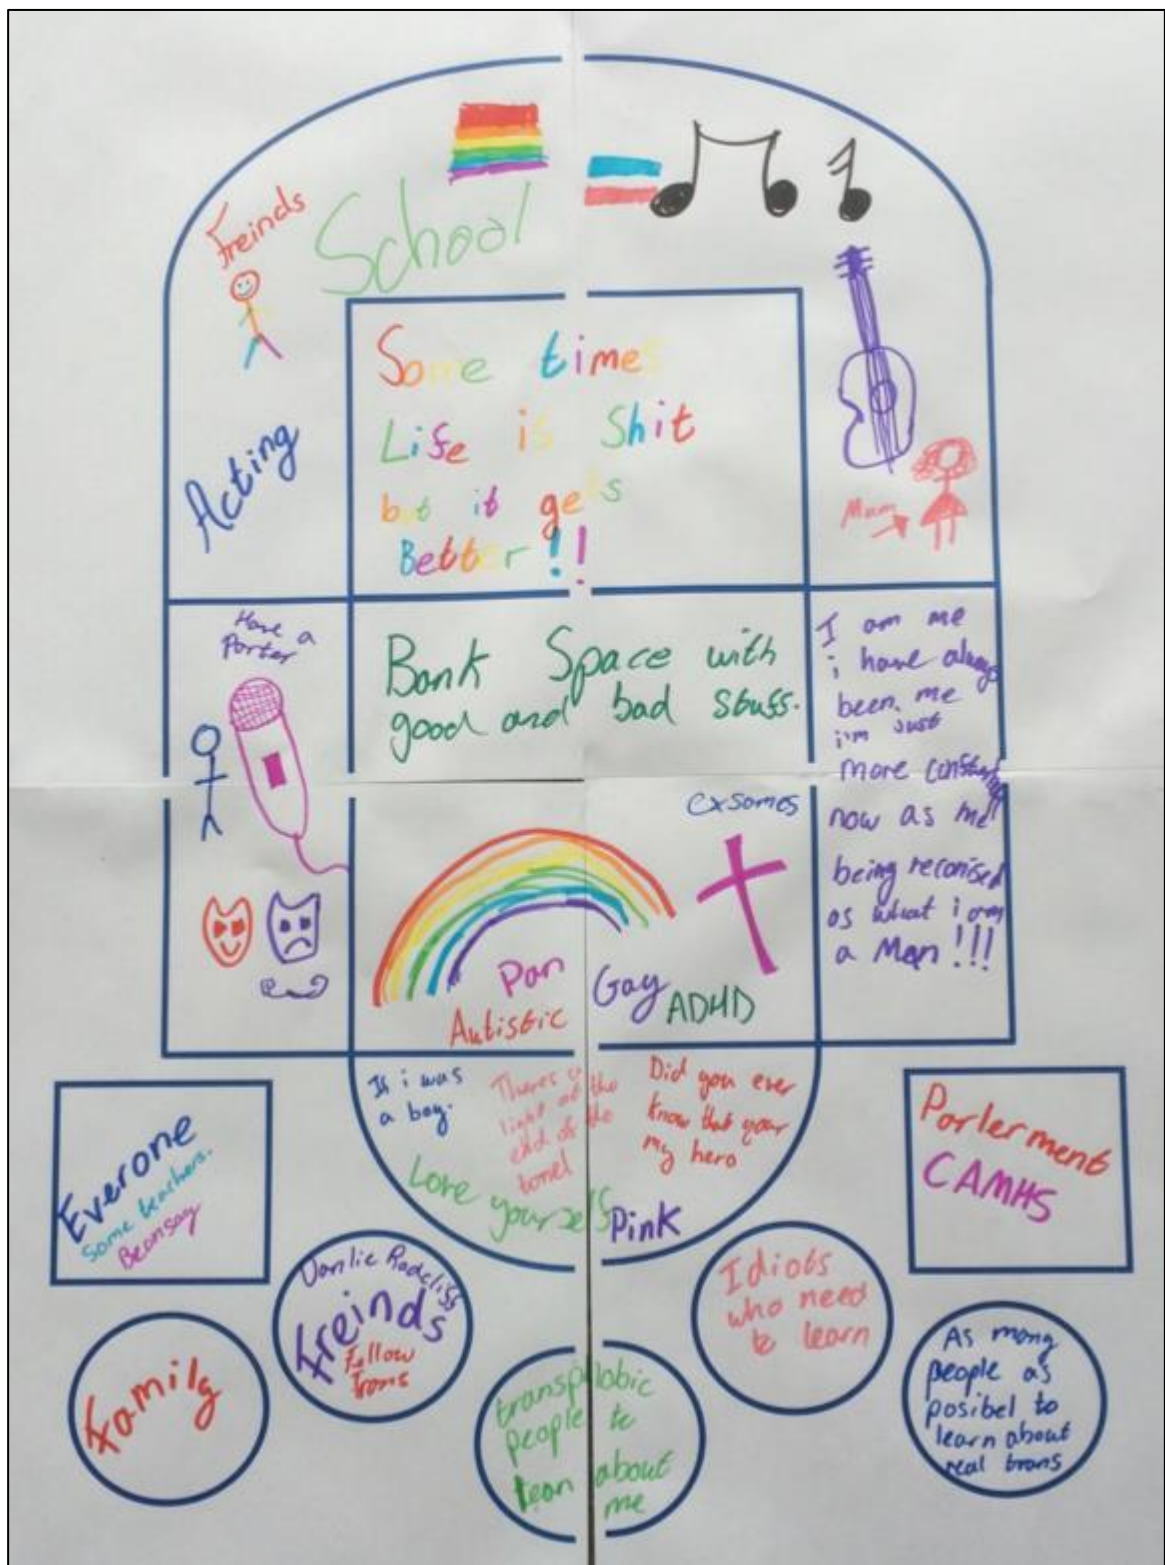 Freinds
School
Acting
Some times
Life is Shit
but it gets
Better!!
Mum
Have a
Porter
Bank Space with
good and bad stuff.
I am me
i have always
been me
i'm just
more
now as me
being reconised
as what i am
a Man!!!
exsomes
Pan
Gay
Autistic
ADHD
If i was
a boy.
Theres a
light at the
end of the
tonel
Did you ever
know that your
my hero
Love yourself
Pink
Everone
some teachers.
Beonsay
Parlerment
CAMHS
Danlie Radcliff
freinds
fellow
Trans
Idiots
who need
to learn
Family
transphobic
people to
lean about
me
As many
people as
posibel to
learn about
real trans